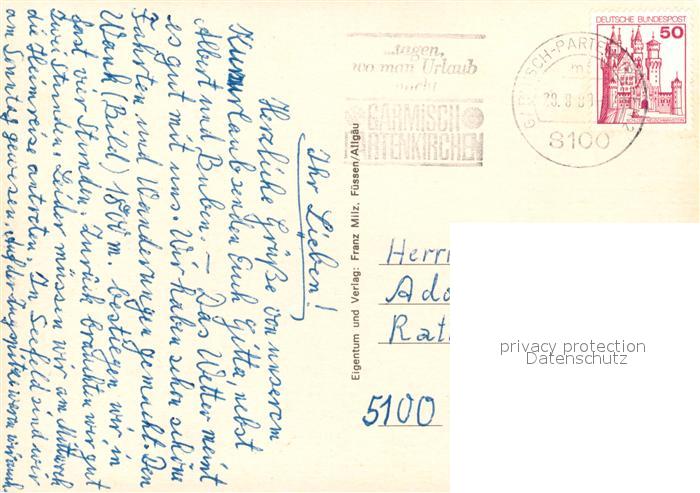 Ihr Lieben!
Herzliche Grüße von unserem
Kururlaub senden Euch Gitta, nebst
Albert und Buben. – Das Wetter meint
es gut mit uns. Wir haben schon schöne
Fahrten und Wanderungen gemacht. Den
Wank (Bild) 1800 m. bestiegen wir in
fast vier Stunden, zurück brauchten wir gut
zwei Stunden. Leider müssen wir am Mittwoch
die Heimreise antreten. In Seefeld sind wir
am Sonntag gewesen. Auf der Zugspitze waren wir auch.
Eigentum und Verlag: Franz Milz, Füssen/Allgäu
...sagen,
wo man Urlaub
macht
GARMISCH
PARTENKIRCHEN
GARMISCH-PARTEN
8100
DEUTSCHE BUNDESPOST
50
Herrn
Ado
Rat
5100
privacy protection
Datenschutz